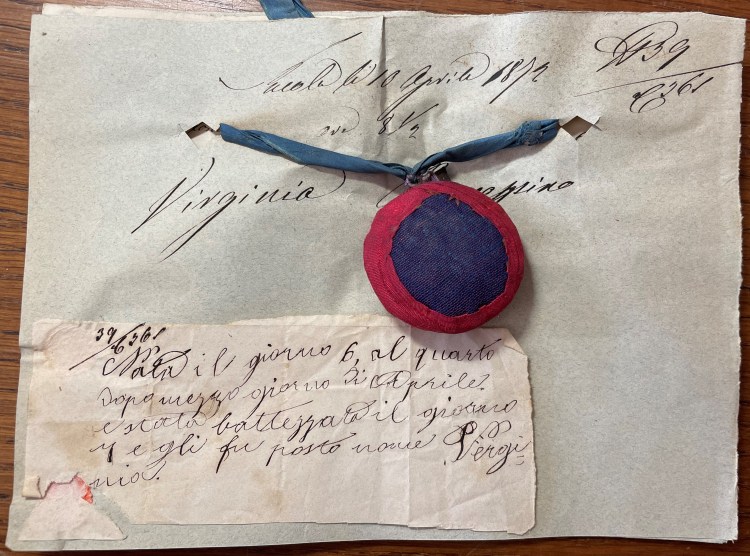 N 39
6361
li 10 Aprile 1872
ore 8 1/2
Virginia
39/6361
Nata il giorno 6, al quarto
Dopo mezzo giorno Di Aprile.
e stata battezzata il giorno
7 e gli fu posto nome Vergi=
nia.